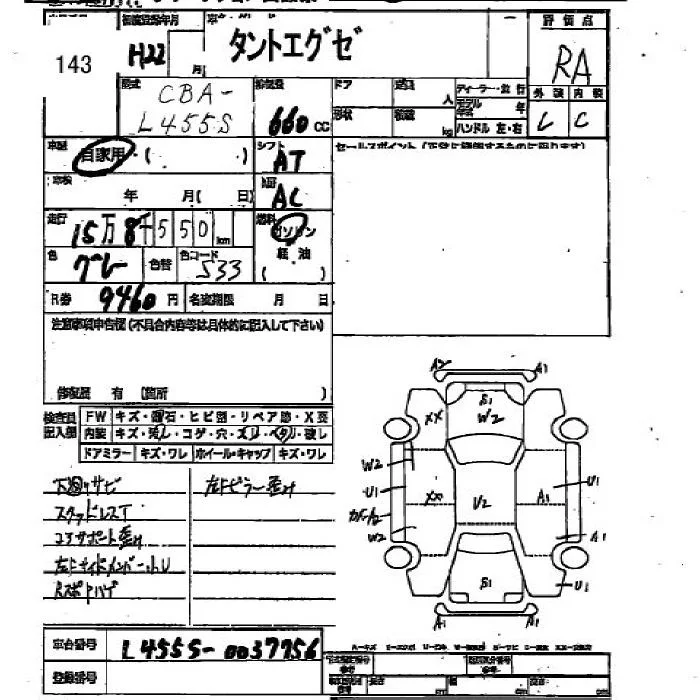 143
初度登録年月
H22
月
タントエグゼ
評価点
RA
型式
CBA-
L455S
排気量
660 cc
ドア
形状
定員
人
積載
kg
ディーラー・並行
モデル
年式
年
ハンドル 左・右
外装 内装
C
車歴
自家用・( )
シフト
AT
車検
年 月( 日)
冷房
AC
セールスポイント(正常に機能するものに限ります)
走行
15万8千550 km
燃料
ガソリン
軽油
( )
色
グレー
色替
色コード
S33
R券 9460円
名変期限 月 日
注意事項申告欄(不具合内容等は具体的に記入して下さい)
修復歴 有 (箇所 )
検査員
記入欄
FW キズ・飛石・ヒビ割・リペア跡・X要
内装 キズ・汚レ・コゲ・穴・スレ・ベタリ・破レ
ドアミラー キズ・ワレ ホイール・キャップ キズ・ワレ
下廻りサビ
スタッドレスT
コアサポート歪み
左Fピラー歪み
A2 A1
S1
XX W2
W2
U1
XX
U2
A1
U1
カバーA2
W2
A1
S1
U1
A1 A1
車台番号 L455S-0037756
登録番号